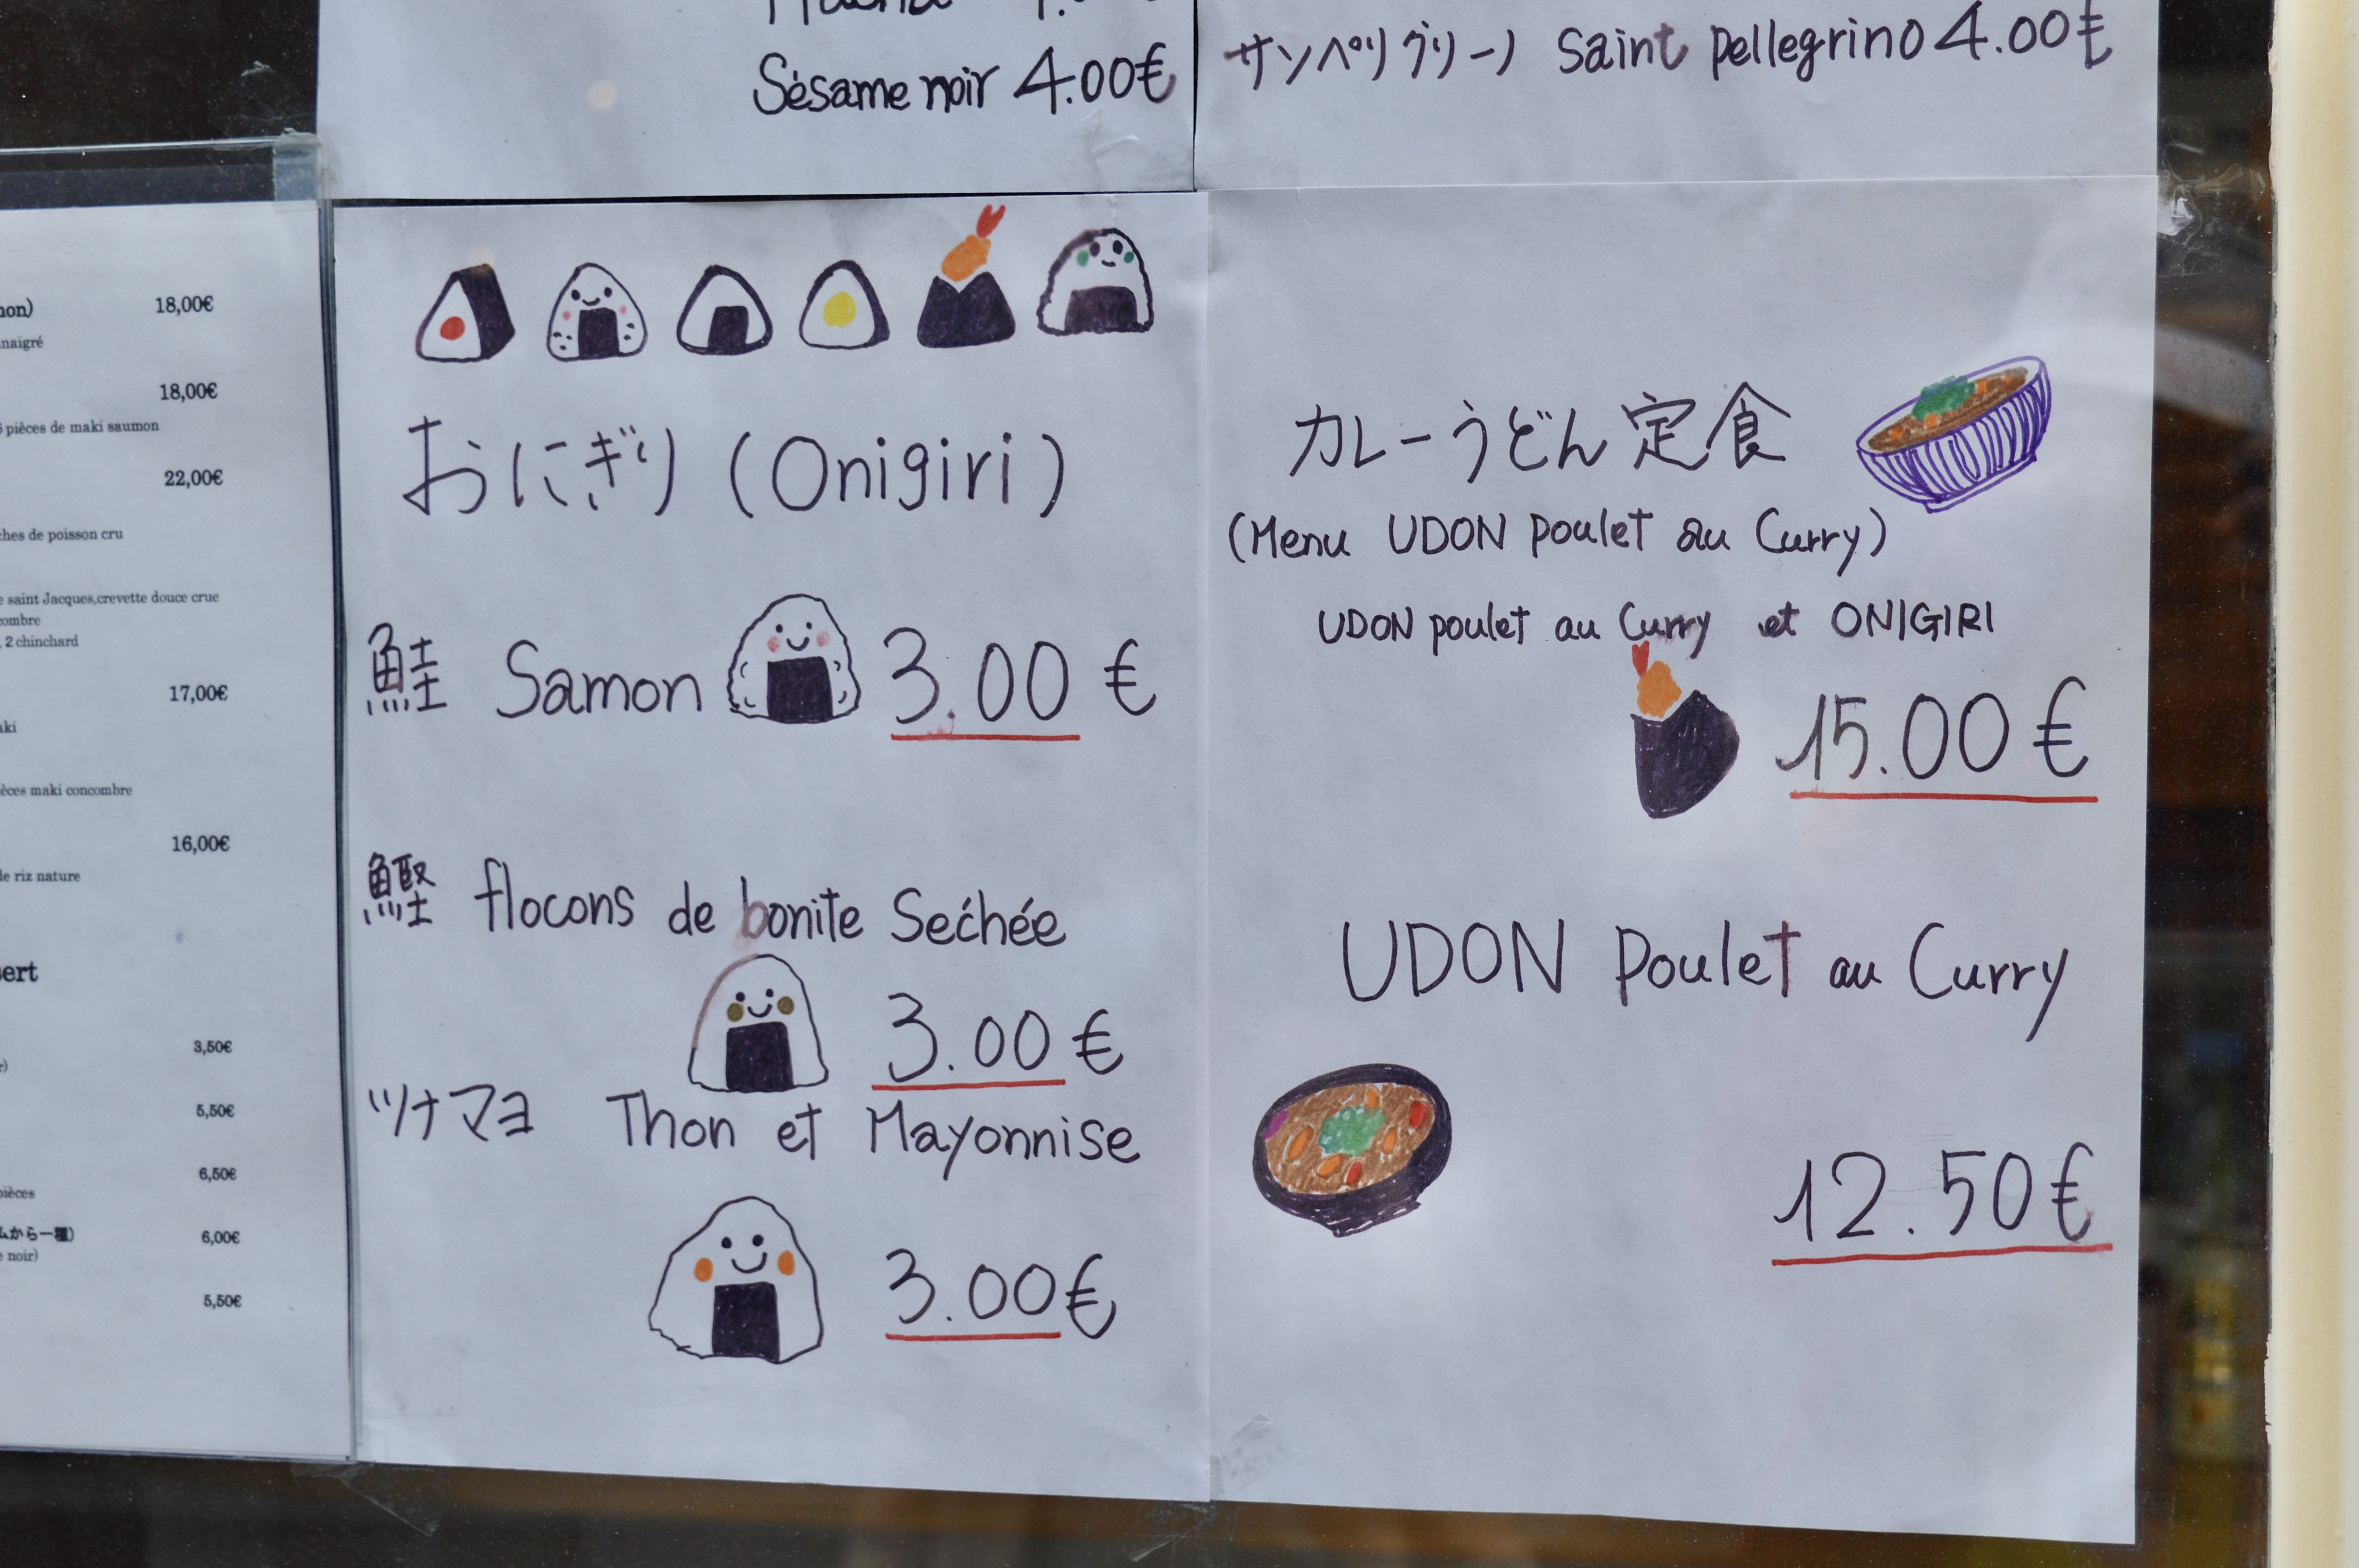 Sésame noir 4.00€
サンペリグリーノ Saint Pellegrino 4.00€
18,00€
18,00€
6 pièces de maki saumon
22,00€
de poisson cru
saint Jacques,crevette douce crue
2 chinchard
17,00€
maki concombre
16,00€
de riz nature
3,50€
5,50€
6,50€
pièces
から一種)
6,00€
noir)
5,50€
おにぎり (Onigiri)
鮭 Samon 3.00 €
鰹 flocons de bonite Sećhée
3.00 €
ツナマヨ Thon et Mayonnise
3.00€
カレーうどん定食
(Menu UDON poulet au Curry)
UDON poulet au Curry et ONIGIRI
15.00€
UDON Poulet au Curry
12.50€